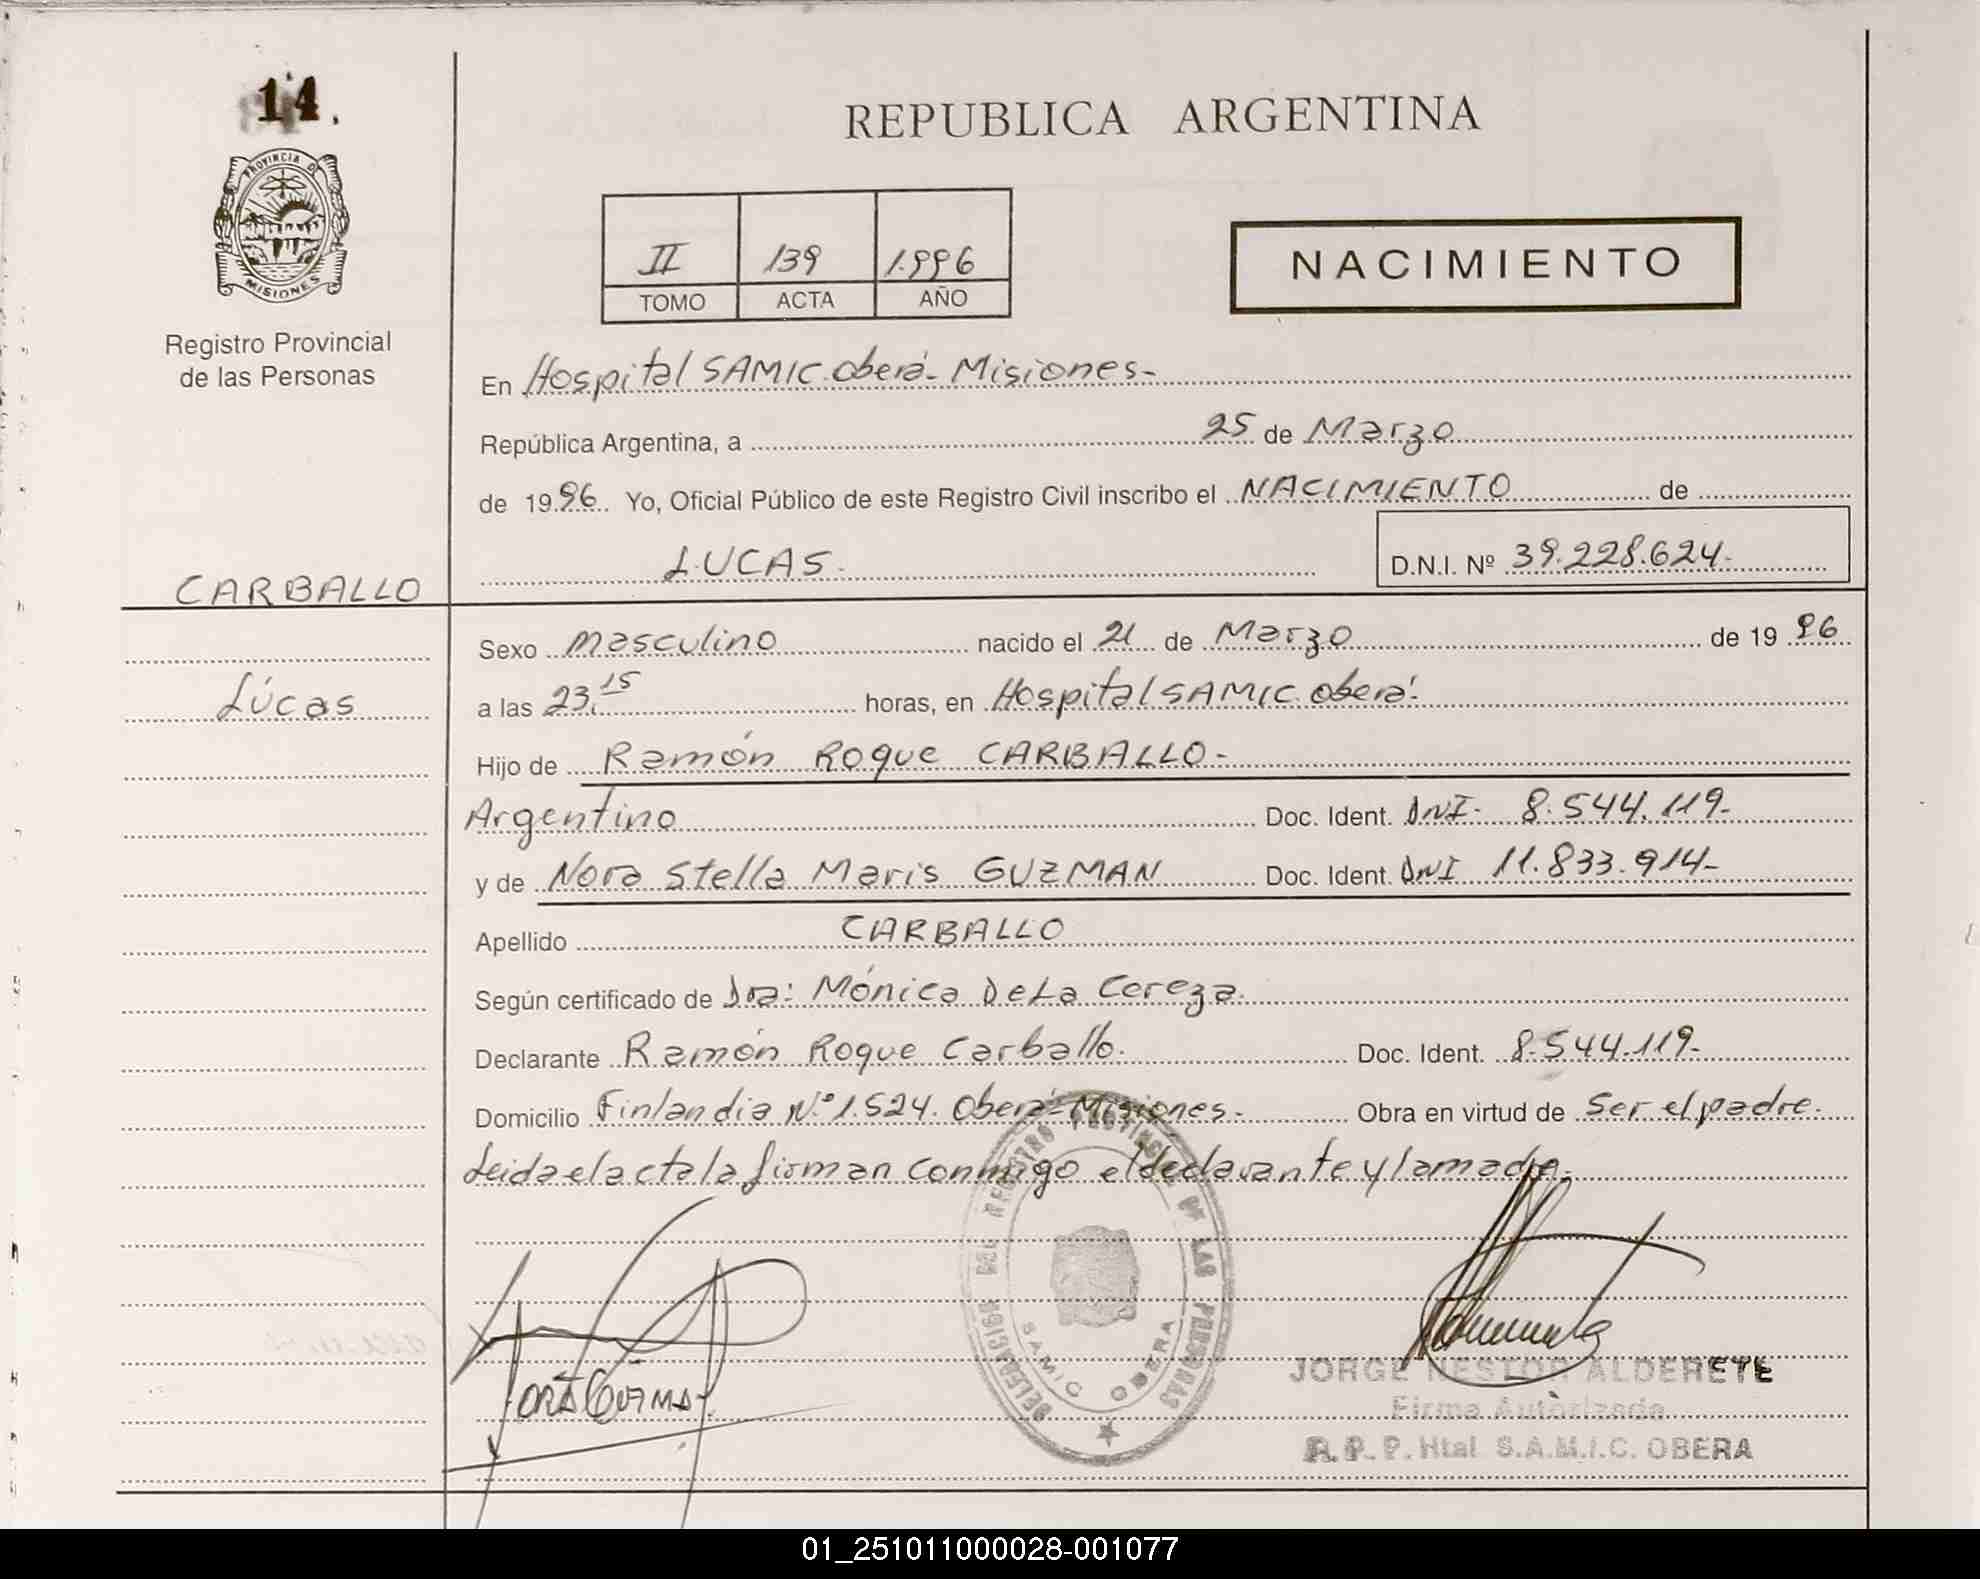 14.
PROVINCIA DE
MISIONES
Registro Provincial
de las Personas
REPUBLICA ARGENTINA
II 139 1.996
TOMO ACTA AÑO
NACIMIENTO
En Hospital SAMIC. Oberá- Misiones-
República Argentina, a 25 de Marzo
de 1996. Yo, Oficial Público de este Registro Civil inscribo el NACIMIENTO de
LUCAS.
D.N.I. Nº 39.228.624-
CARBALLO
Lúcas
Sexo masculino nacido el 21 de Marzo de 19 96
a las 23.15 horas, en Hospital SAMIC. Oberá.
Hijo de Ramón Roque CARBALLO-
Argentino Doc. Ident. DNI- 8.544.119-
y de Nora Stella Maris GUZMAN Doc. Ident. DNI 11.833.914-
Apellido CARBALLO
Según certificado de Dra: Mónica De La Cereza.
Declarante Ramón Roque Carballo. Doc. Ident. 8.544.119-
Domicilio Finlandia Nº 1.524. Oberá-Misiones- Obra en virtud de Ser el padre.
Leida el acta la firman conmigo el declarante y la madre.
DELEGACION DEL REGISTRO PROVINCIAL DE LAS PERSONAS
SAMIC OBERA
JORGE NESTOR ALDERETE
Firma Autorizada
R. P. P. Htal S.A.M.I.C. OBERA
01_251011000028-001077